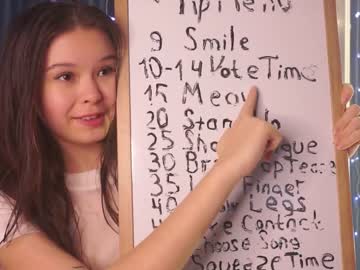 Tip Menu
9 Smile
10-14 Vote Time
15 Meow
20 Stand Up
25 Sho
30 Br Tease
35 Finger
40 Legs
Contact
Choose Song
Squeeze Time